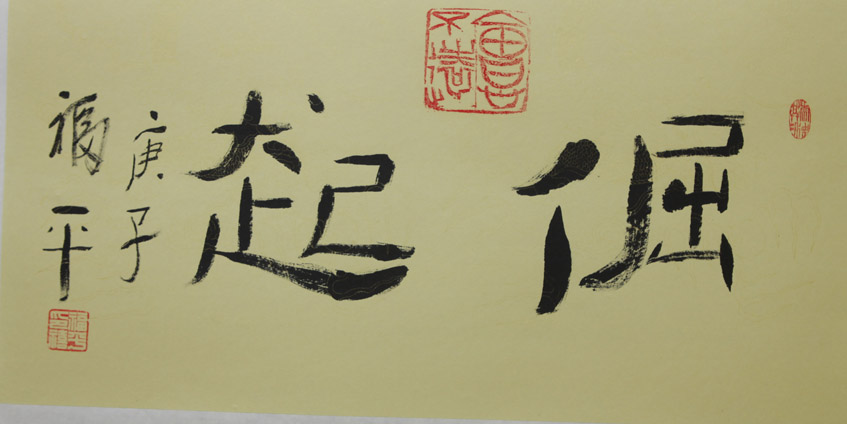 倔起
庚子
福平